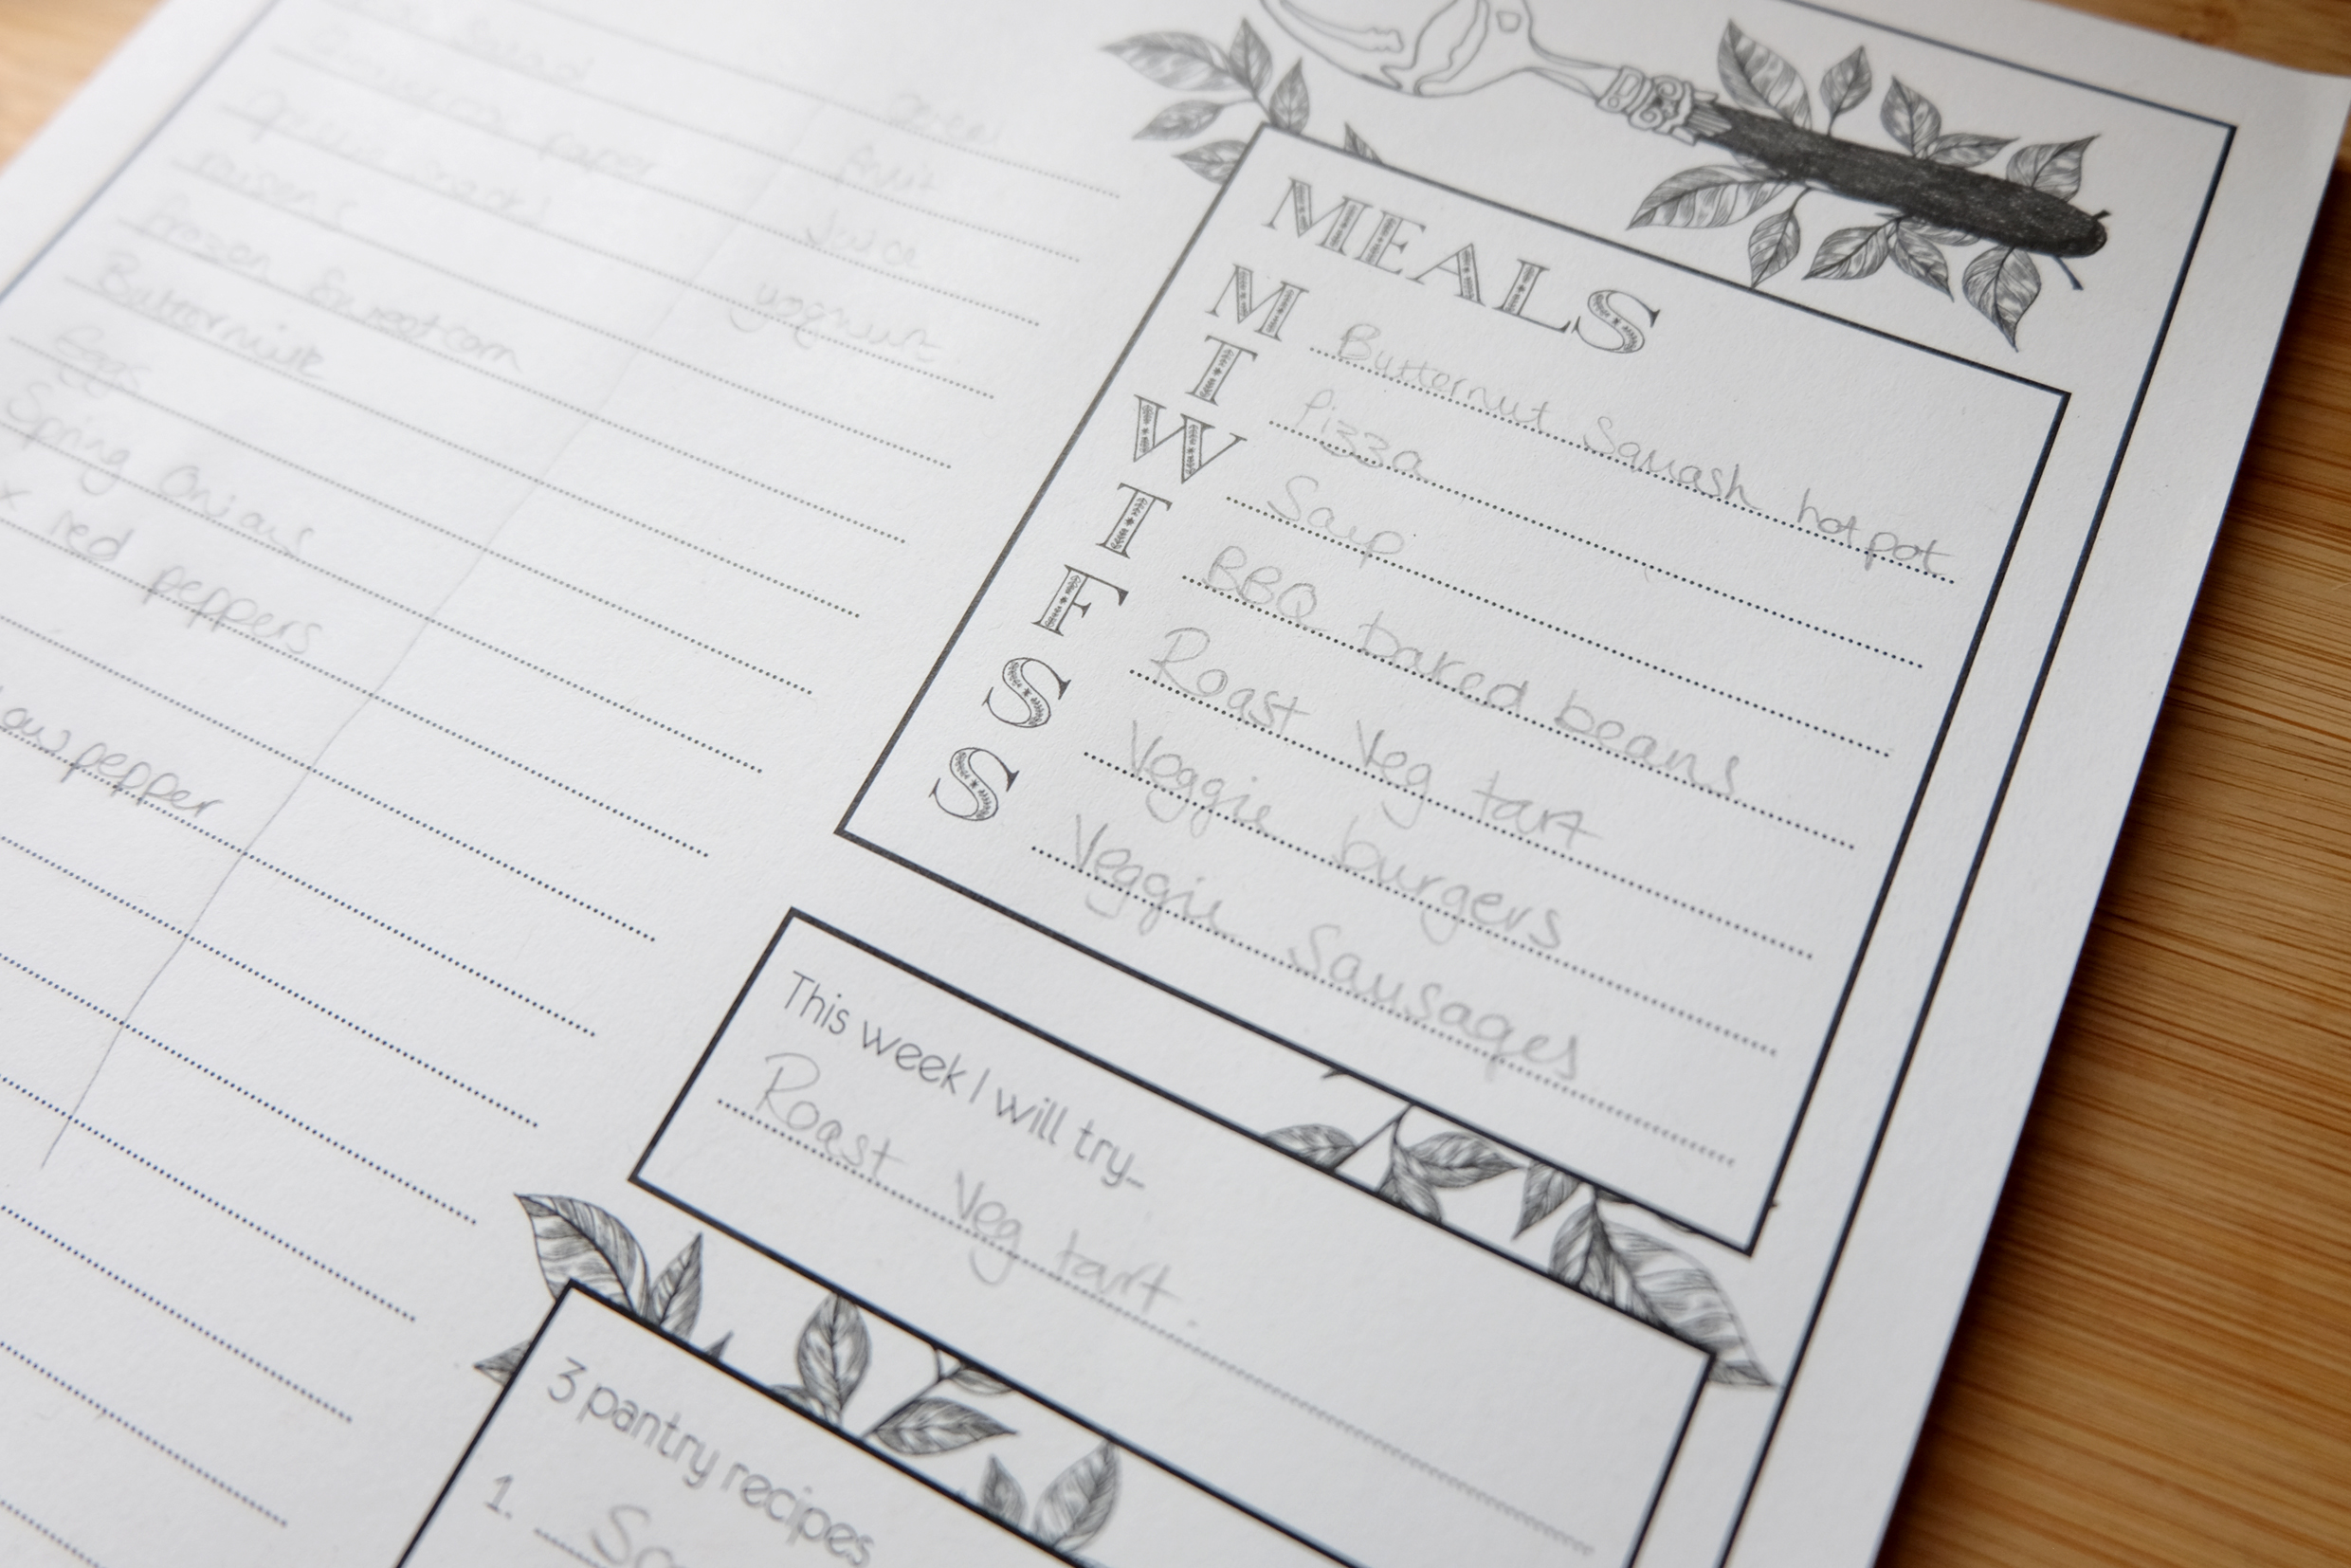 bread
paper
fruit
Juice
yoghurt
raisins
frozen Sweetcorn
Buttermilk
Eggs
Spring Onions
x red peppers
low pepper
MEALS
M Butternut Squash hotpot
T Pizza
W Soup
T BBQ baked beans
F Roast Veg tart
S Veggie burgers
S Veggie Sausages
This week I will try...
Roast Veg tart.
3 pantry recipes
1. So